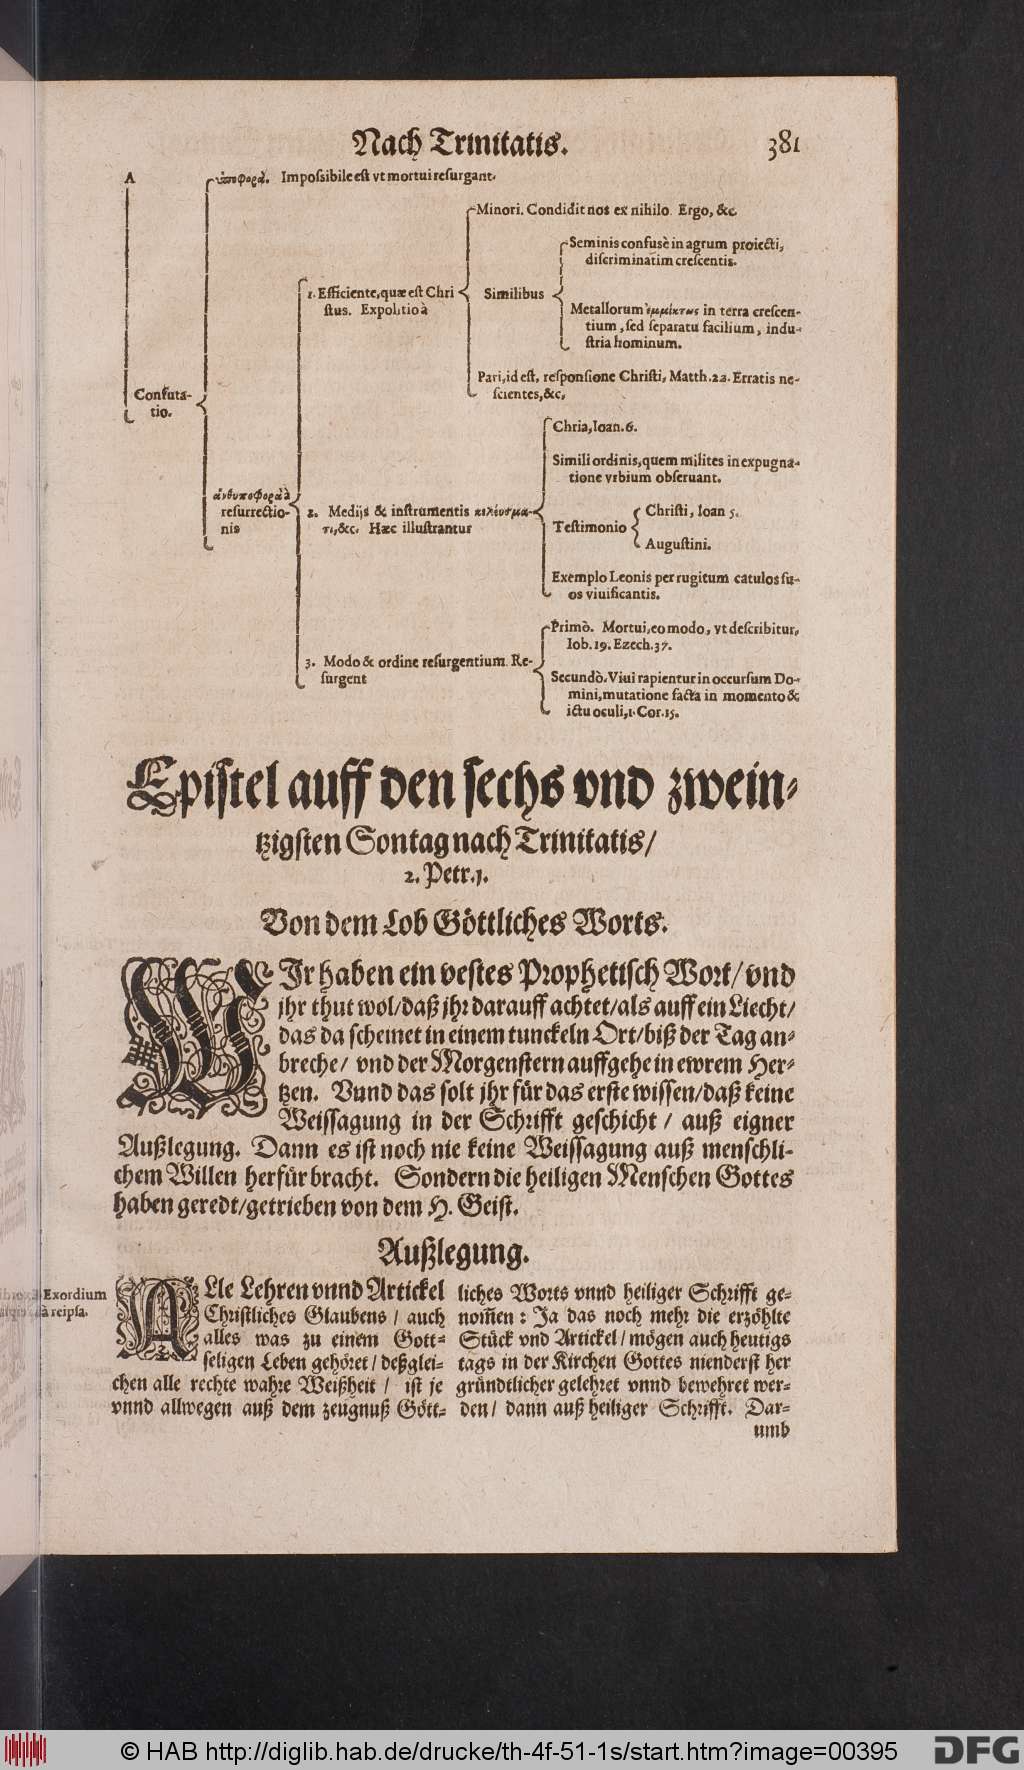 Nach Trinitatis. 381
A
ὑποφορά. Impossibile est vt mortui resurgant.
Minori. Condidit nos ex nihilo. Ergo, &c.
Seminis confusè in agrum proiecti,
discriminatim crescentis.
1. Efficiente, quæ est Chri
stus. Expolitio à
Similibus
Metallorum ἐμμίκτως in terra crescen-
tium, sed separatu facilium, indu-
stria hominum.
Pari, id est, responsione Christi, Matth. 22. Erratis ne-
scientes, &c.
Confuta-
tio.
Chria, Ioan. 6.
Simili ordinis, quem milites in expugna-
tione vrbium obseruant.
ἀνθυποφορὰ à
resurrectio-
nis
2. Medijs & instrumentis κελέυσμα-
τι, &c. Hæc illustrantur
Testimonio
Christi, Ioan 5.
Augustini.
Exemplo Leonis per rugitum catulos su-
os viuificantis.
Primò. Mortui, eo modo, vt describitur,
Iob. 19. Ezech. 37.
3. Modo & ordine resurgentium. Re-
surgent
Secundò. Viui rapientur in occursum Do-
mini, mutatione facta in momento &
ictu oculi, 1. Cor. 15.
Epistel auff den sechs vnd zwein-
tzigsten Sontag nach Trinitatis/
2. Petr. 1.
Von dem Lob Göttliches Worts.
WIr haben ein vestes Prophetisch Wort/ vnd
jhr thut wol/ daß jhr darauff achtet/ als auff ein Liecht/
das da scheinet in einem tunckeln Ort/ biß der Tag an-
breche/ vnd der Morgenstern auffgehe in ewrem Her-
tzen. Vnnd das solt jhr für das erste wissen/ daß keine
Weissagung in der Schrifft geschicht/ auß eigner
Außlegung. Dann es ist noch nie keine Weissagung auß menschli-
chem Willen herfür bracht. Sondern die heiligen Menschen Gottes
haben geredt/ getrieben von dem H. Geist.
Außlegung.
Exordium
à reipsa.
ALle Lehren vnnd Artickel
Christliches Glaubens/ auch
alles was zu einem Gott-
seligen Leben gehöret/ deßglei-
chen alle rechte wahre Weißheit/ ist je
vnnd allwegen auß dem zeugnuß Gött-
liches Worts vnnd heiliger Schrifft ge-
nom̃en: Ja das noch mehr die erzöhlte
Stück vnd Artickel/ mögen auch heutigs
tags in der Kirchen Gottes nienderst her
gründtlicher gelehret vnnd bewehret wer-
den/ dann auß heiliger Schrifft. Dar-
umb
© HAB http://diglib.hab.de/drucke/th-4f-51-1s/start.htm?image=00395
DFG